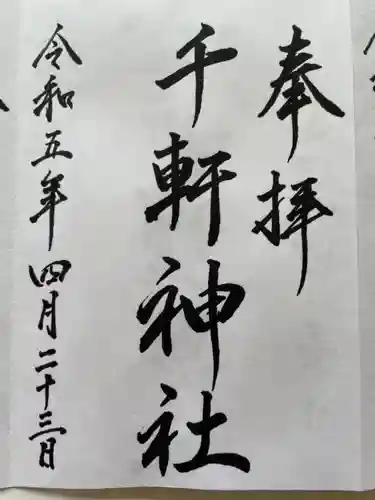 奉拝
千軒神社
令和五年四月二十三日